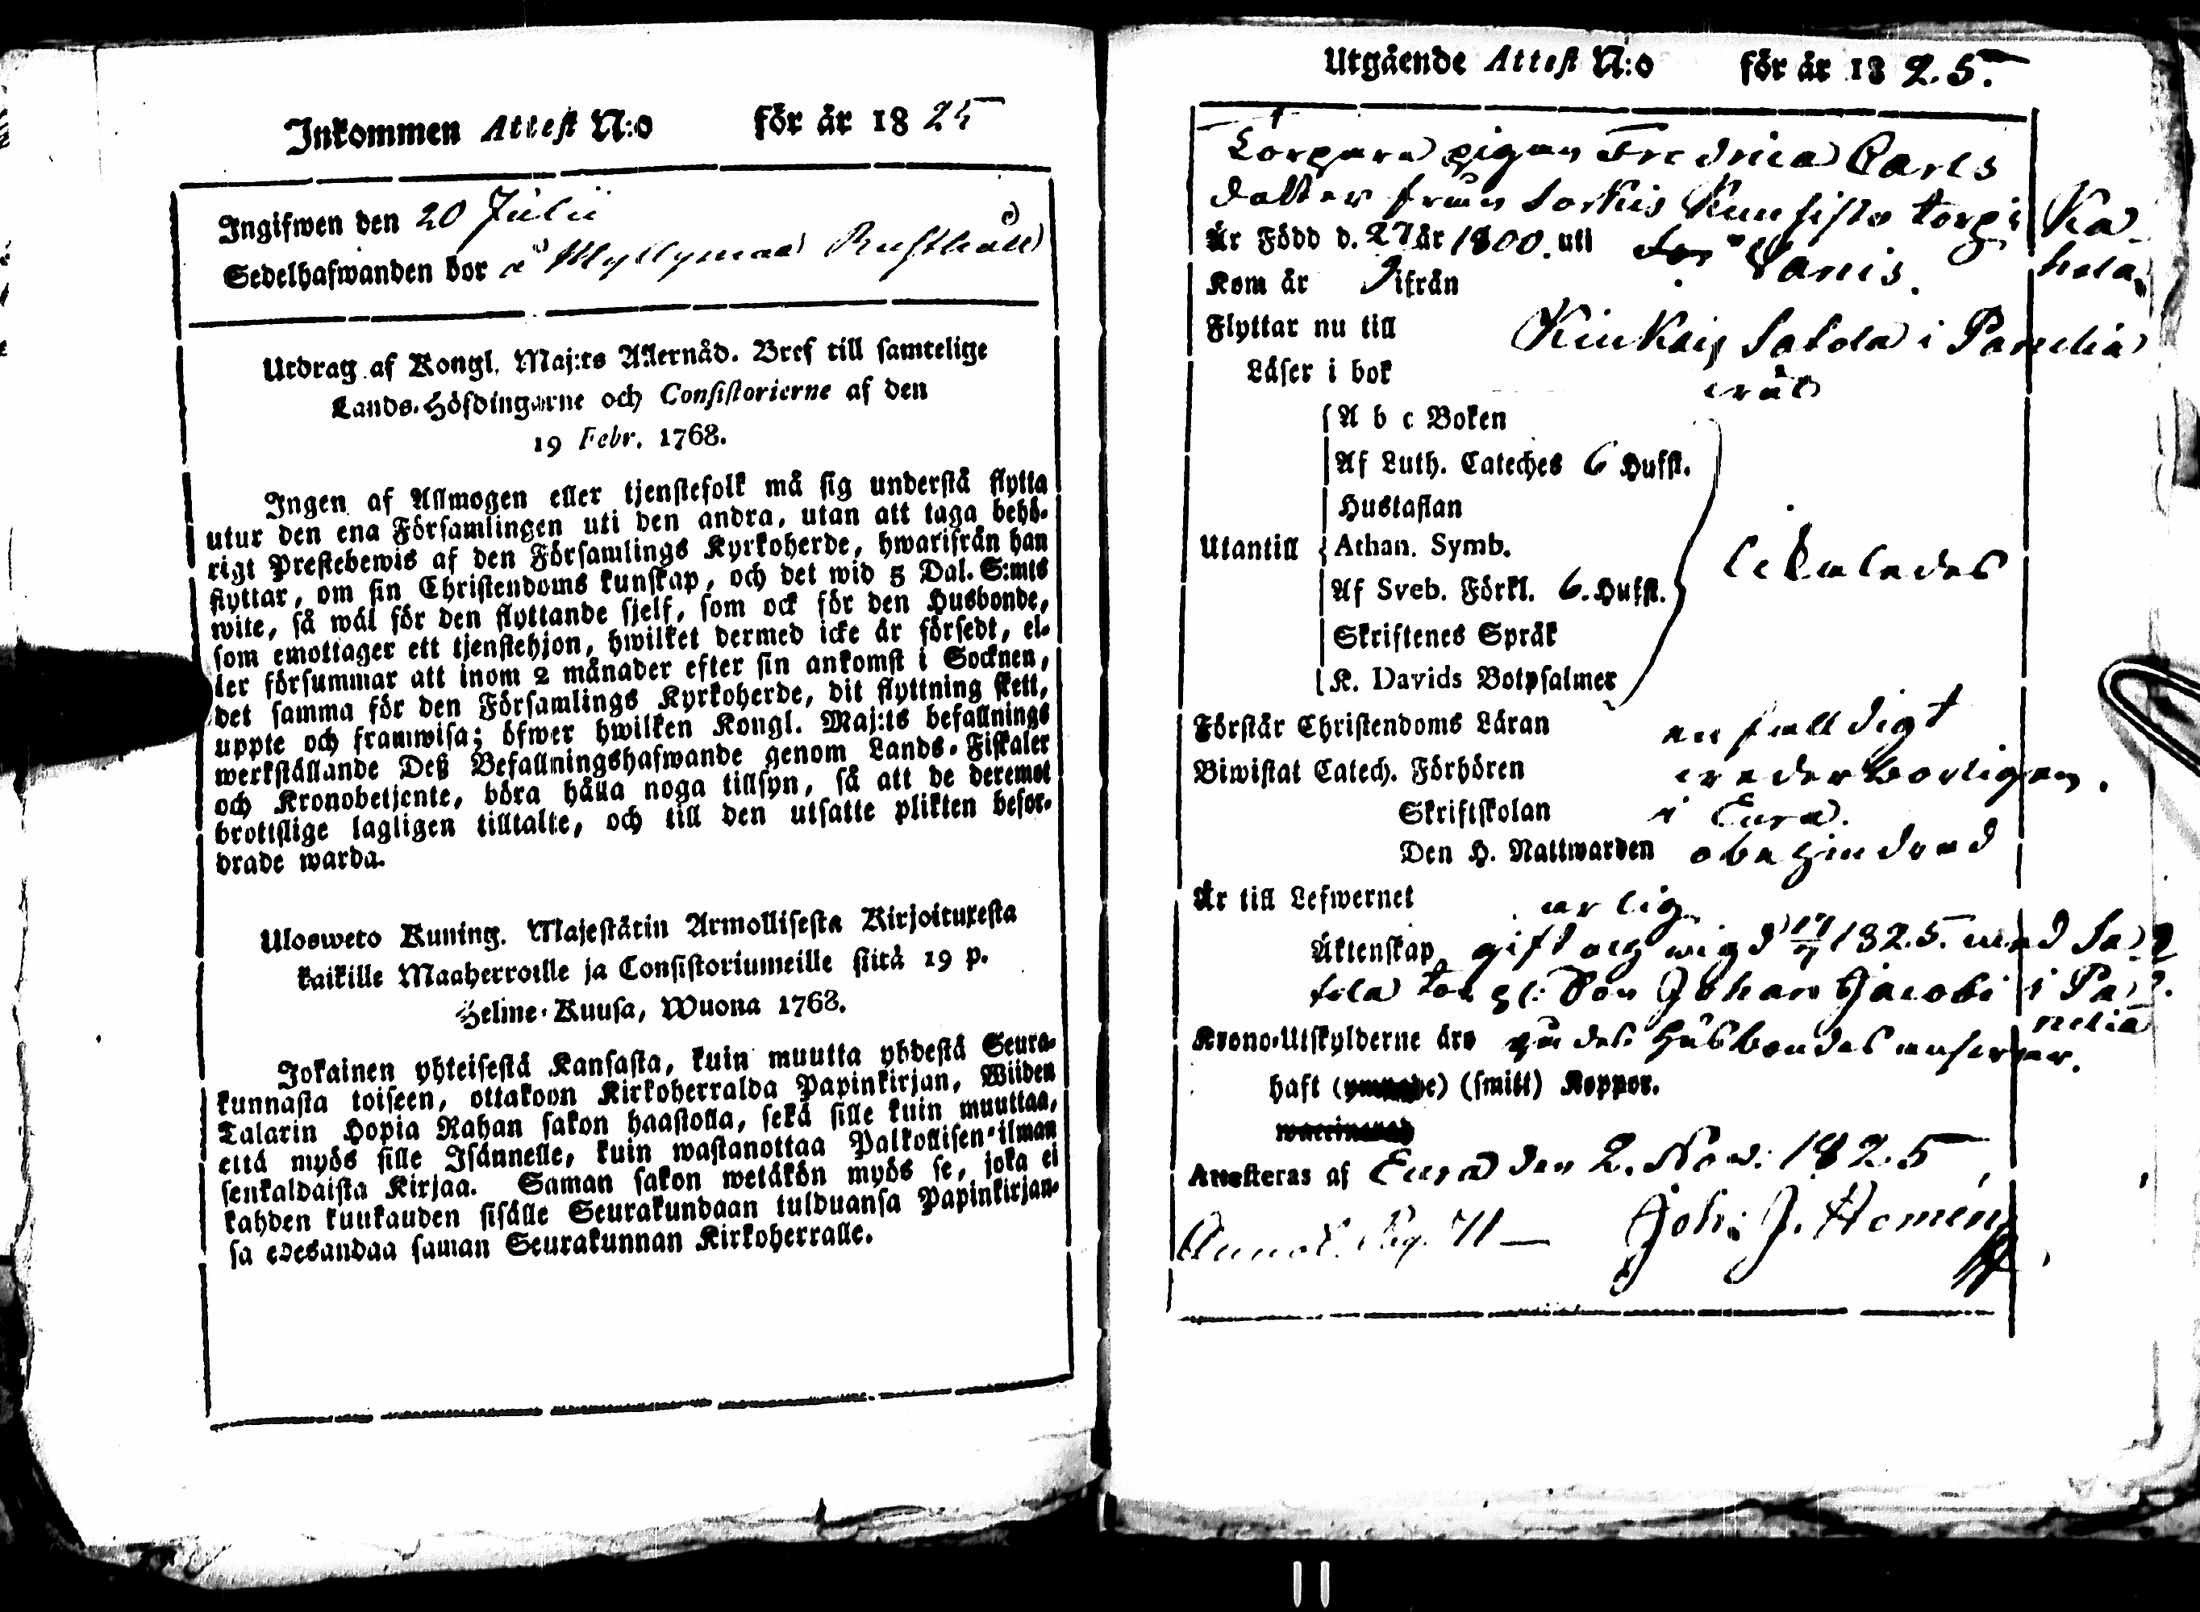 Inkommen Attest N:o för år 1825
Ingifwen den 20 Julii
Sedelhafwanden bor å Myllymaa Rusthåll
Utdrag af Kongl. Maj:ts Allernåd. Bref till samtelige
Lands-Höfdingarne och Consistorierne af den
19 Febr. 1768.
Ingen af Allmogen eller tjenstefolk må sig understå flytta
utur den ena Församlingen uti den andra, utan att taga behö-
rigt Prestebewis af den Församlings Kyrkoherde, hwarifrån han
flyttar, om sin Christendoms kunskap, och det wid 5 Dal. S:mts
wite, så wäl för den flyttande sjelf, som ock för den Husbonde,
som emottager ett tjenstehjon, hwilket dermed icke är försedt, el-
ler försummar att inom 2 månader efter sin ankomst i Socknen,
det samma för den Församlings Kyrkoherde, dit flyttning skett,
uppte och framwisa; öfwer hwilken Kongl. Maj:ts befallnings
werkställande Deß Befallningshafwande genom Lands-Fiskaler
och Kronobetjente, böra hålla noga tillsyn, så att de deremot
brottslige lagligen tilltalte, och till den utsatte plikten befor-
drade warda.
Ulosweto Kuning. Majestätin Armollisesta Kirjoituxesta
kaikille Maaherroille ja Consistoriumeille siitä 19 p.
Helme-Kuusa, Wuona 1768.
Jokainen yhteisestä Kansasta, kuin muutta yhdestä Seura-
kunnasta toiseen, ottakoon Kirkoherralda Papinkirjan, Wiiden
Talarin Hopia Rahan sakon haastolla, sekä sille kuin muuttaa,
että myös sille Isännelle, kuin wastanottaa Palkollisen ilman
senkaldaista Kirjaa. Saman sakon wetäkön myös se, joka ei
kahden kuukauden sisälle Seurakundaan tulduansa Papinkirjan-
sa edesandaa saman Seurakunnan Kirkoherralle.
Utgående Attest N:o för år 1825.
Torpare pigan Fredrica Carls
dotter från Sorkis Kuusisto torp i Ka-
Är Född d. 27 år 1800. uti Sanis. hola
Kom år ifrån
Flyttar nu till Kiukais Satola i Panelia
Läser i bok
A b c Boken
Af Luth. Cateches 6 Hufst.
Hustaflan
Utantill Athan. Symb. likaledes
Af Sveb. Förkl. 6. Hufst.
Skriftenes Språk
K. Davids Botpsalmer
Förstår Christendoms Läran enfalldigt
Biwistat Catech. Förhören wederborligen.
Skriftskolan i Eura.
Den H. Nattwarden obehindrad
Är till Lefwernet ärlig
Äktenskap gift och wigd 17/7 1825. med Sa-
tola torp: Son Johan Jacobs i Pa-
nelia
Krono-Utskylderne äro på des Husbondes ansvar.
haft (smitt) Koppor.
Attesteras af Eura den 2. Nov: 1825
Annot. Pag. 71 — Joh: J. Homén